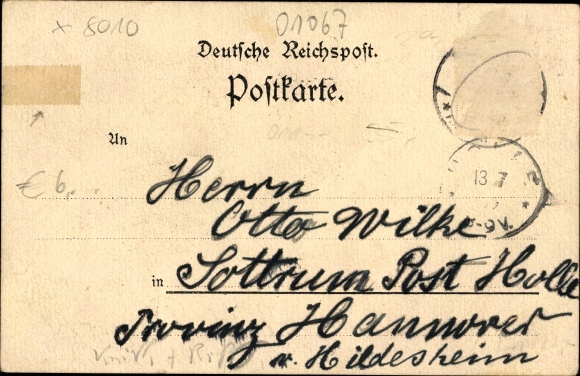 x 8010
01067
Deutsche Reichspost.
Postkarte.
An
€ 6,-
13 7
-9V.
Herrn
Otto Wilke
in Sottrum Post Holle
Provinz Hannover
v. Hildesheim